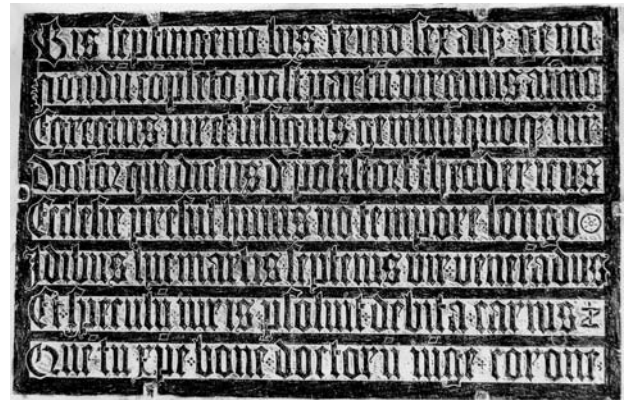 Bis septingeno bis trino sexaq; geno
nondu copleto post partu virginis anno
Egregius vir gemini quoq; iuri
Doctor qui dictus d theodericus
Eclesie presul huius no tempore longo
Idibus hic septenis vir veneradus
Et psoluit debita carnis
Que tu xpe bone doctoru iuge corone